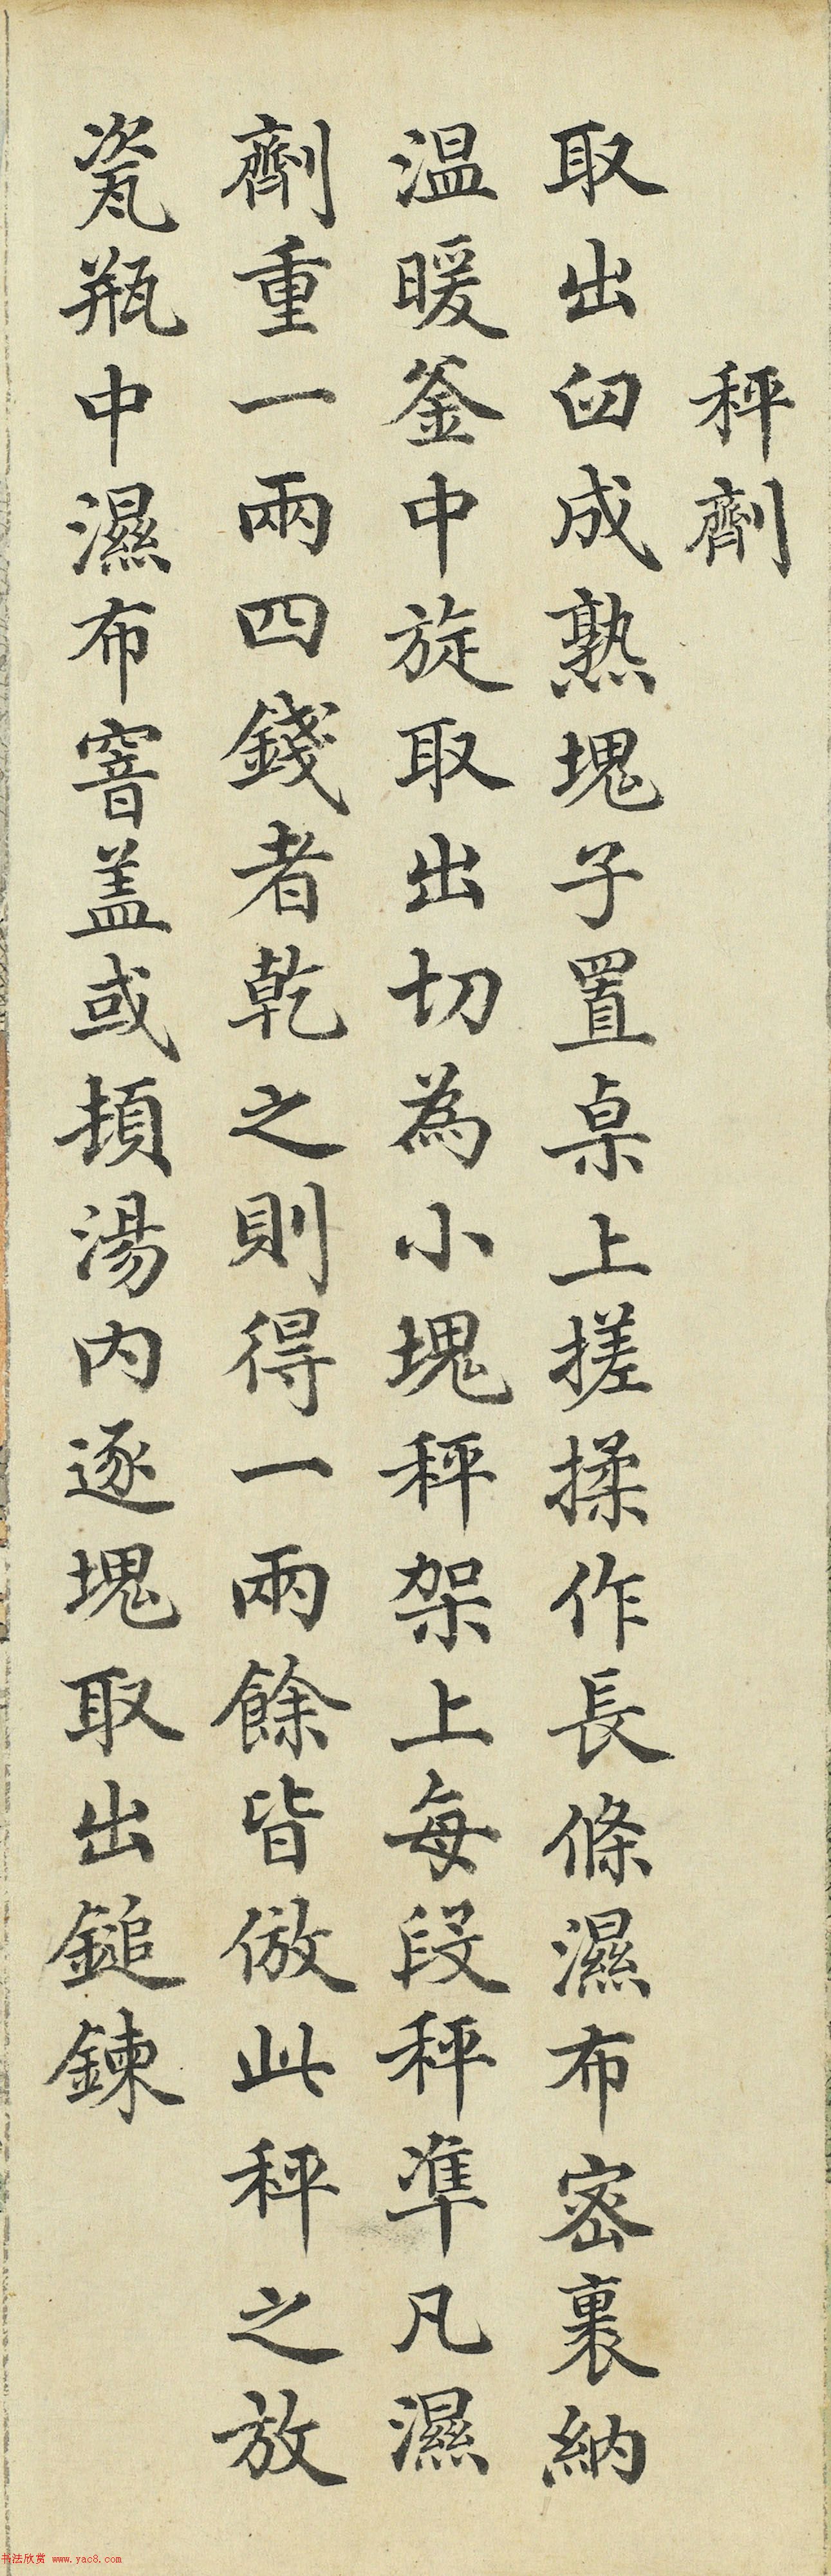 秤劑
取出臼成熟塊子置桌上搓揉作長條濕布密裹納
温暖釜中旋取出切為小塊秤架上每段秤準凡濕
劑重一兩四錢者乾之則得一兩餘皆倣此秤之放
瓷瓶中濕布窨盖或頓湯內逐塊取出鎚鍊
书法欣赏 www.yac8.com